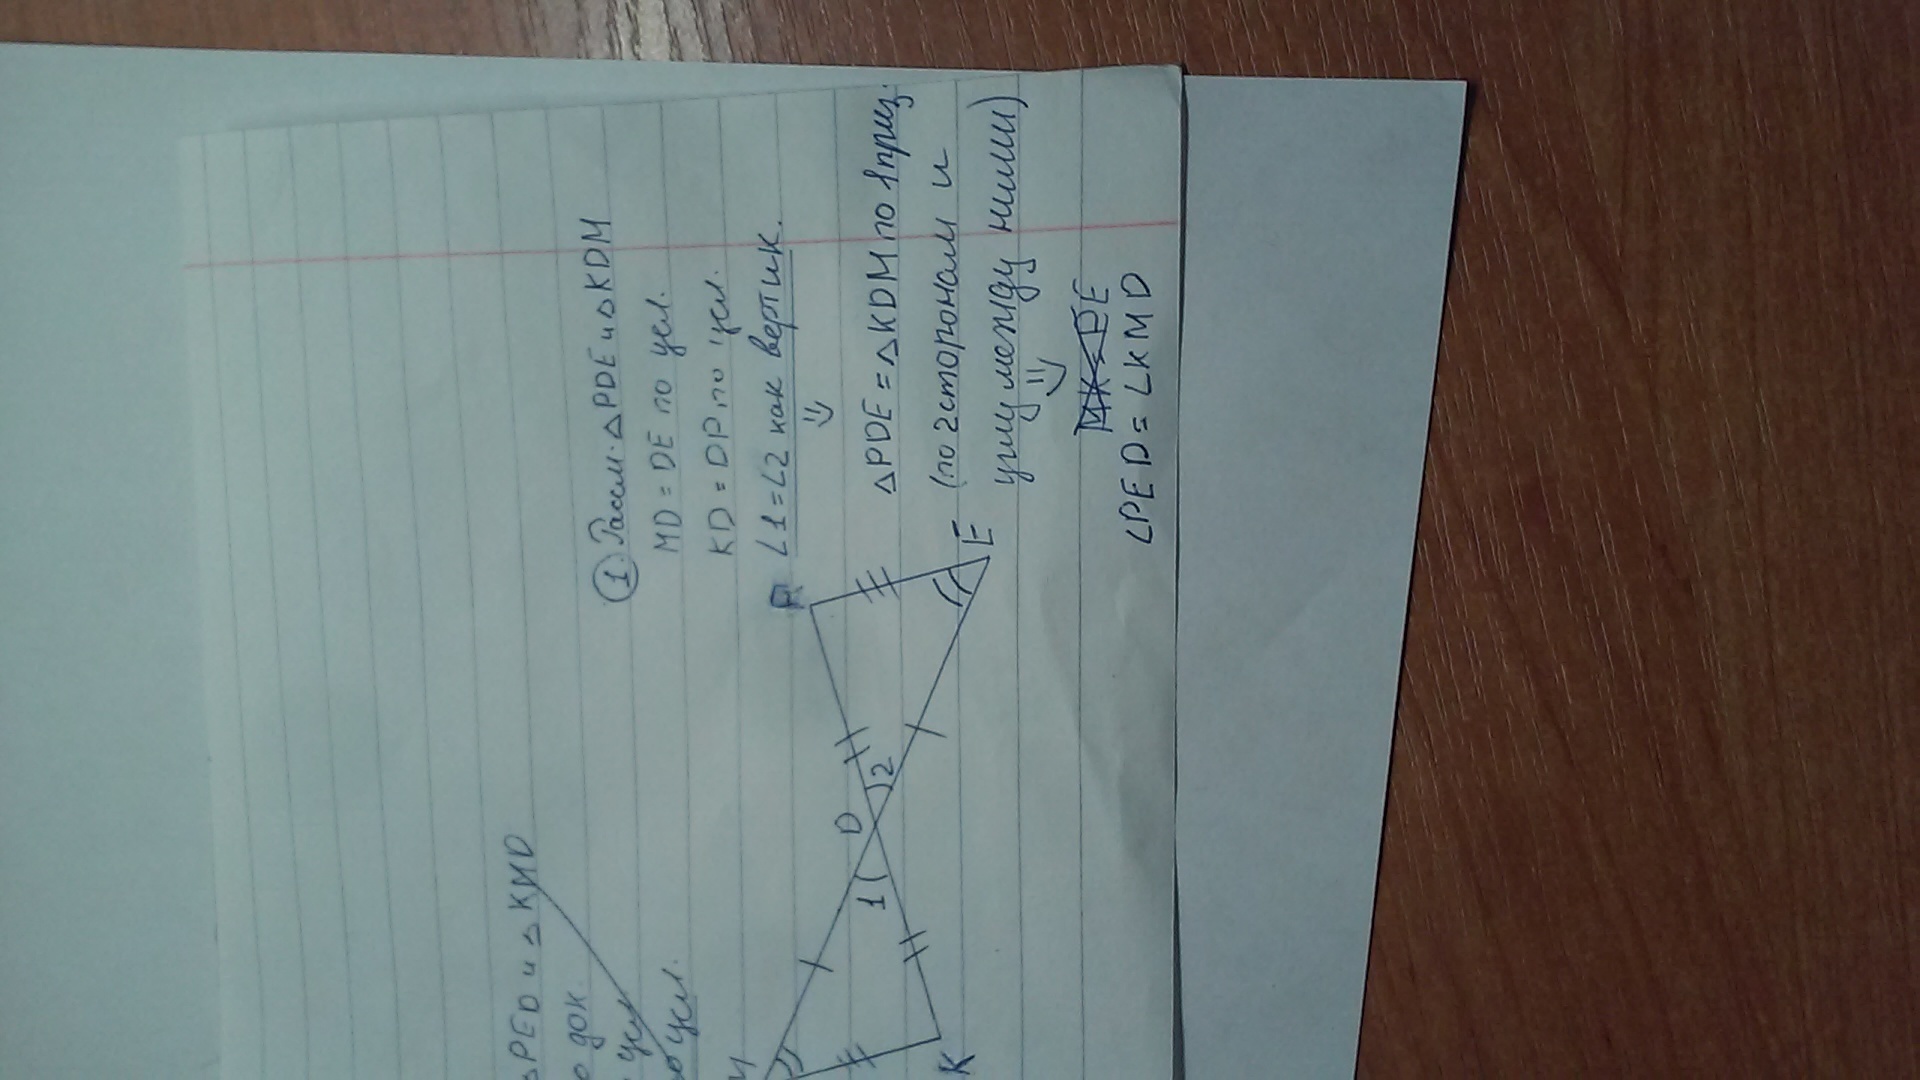 △PED и △KMD
о док.
усл
по усл.
① Рассм. △PDE и △KDM
MD = DE по усл.
KD = DP по усл.
∠1 = ∠2 как вертик.
⇓
△PDE = △KDM по 1 приз.
(по 2 сторонам и
углу между ними)
⇓
MK = PE
∠PED = ∠KMD
P
E
D
1
2
K